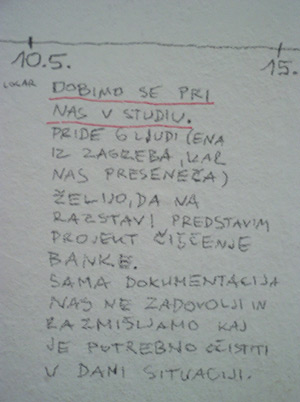 10.5. 15.
DOBIMO SE PRI
NAS V STUDIU.
PRIDE 6 LJUDI (ENA
IZ ZAGREBA, KAR
NAS PRESENEČA)
ŽELIJO, DA NA
RAZSTAVI PREDSTAVIM
PROJEKT ČIŠČENJE
BANKE.
SAMA DOKUMENTACIJA
NAS NE ZADOVOLJI IN
RAZMIŠLJAMO KAJ
JE POTREBNO OČISTITI
V DANI SITUACIJI.